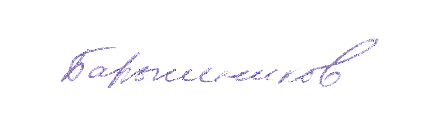 Барышников